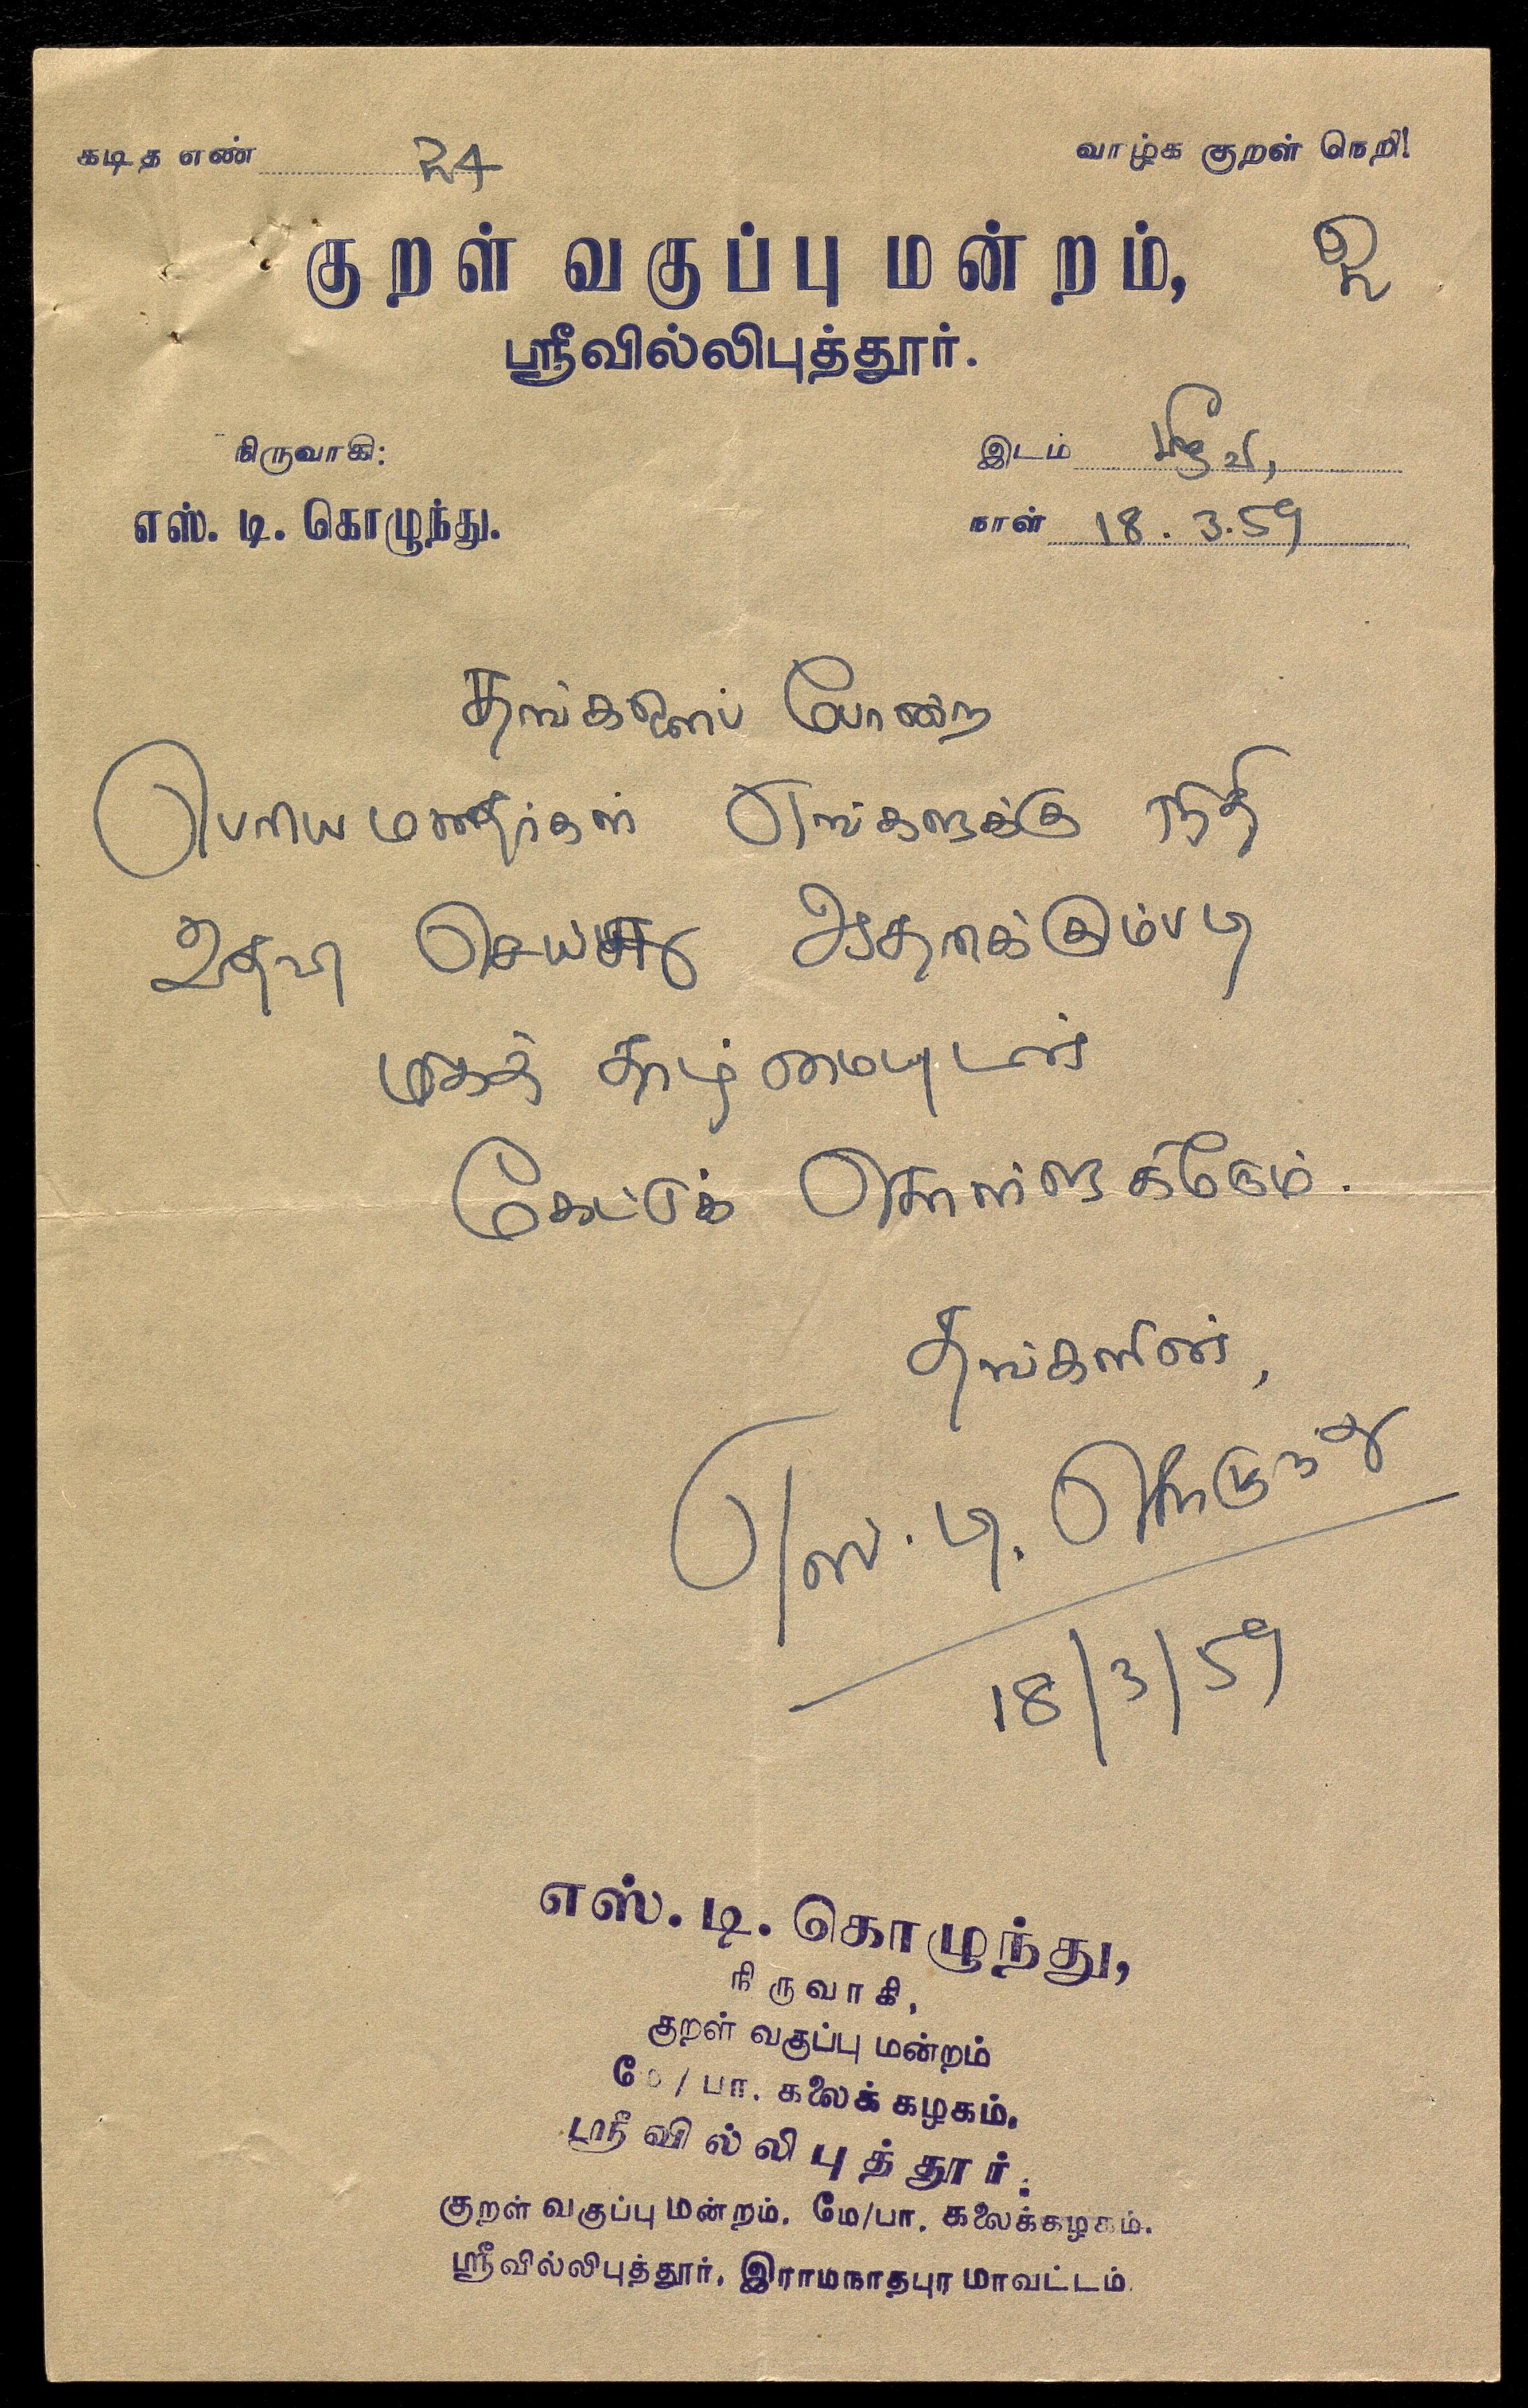 கடித எண் 24
வாழ்க குறள் நெறி!
குறள் வகுப்பு மன்றம்,
ஸ்ரீவில்லிபுத்தூர்.
நிருவாகி:
இடம்
எஸ். டி. கொழுந்து.
நாள் 18.3.59
தங்களைப் போன்ற
பெரியமனிதர்கள் எங்களுக்கு நிதி
உதவி செய்து ஆதரிக்கும்படி
மிகத் தாழ்மையுடன்
கேட்டுக் கொள்ளுகிறேம்.
தங்களின்,
எஸ். டி. கொழுந்து
18/3/59
எஸ். டி. கொழுந்து,
நிருவாகி,
குறள் வகுப்பு மன்றம்
மே/பா. கலைக்கழகம்.
ஸ்ரீவில்லிபுத்தூர்.
குறள் வகுப்பு மன்றம். மே/பா. கலைக்கழகம்.
ஸ்ரீவில்லிபுத்தூர், இராமநாதபுர மாவட்டம்.